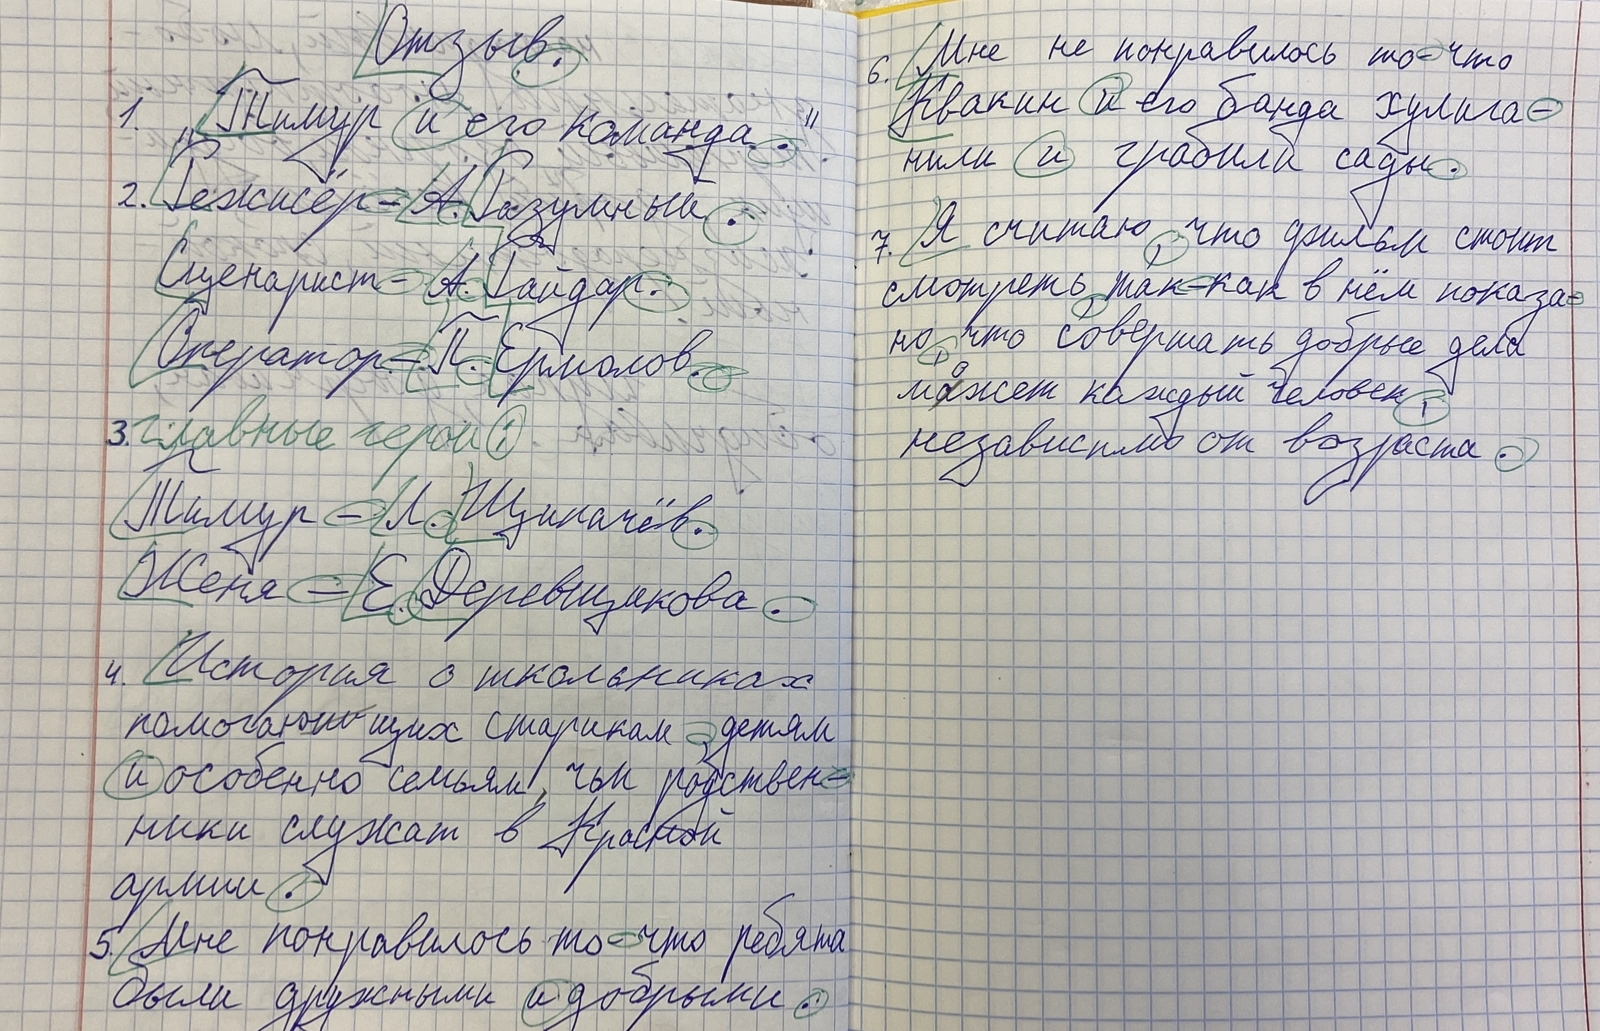 Отзыв.
1. "Тимур и его команда."
2. Режисёр - А. Разумный.
Сценарист - А. Гайдар.
Оператор - П. Ермолов.
3. главные герои:
Тимур - Л. Щипачёв.
Женя - Е. Деревщикова.
4. История о школьниках
помогающих старикам, детям
и особенно семьям, чьи родствен-
ники служат в Красной
армии.
5. Мне понравилось то-что ребята
были дружными и добрыми.
6. Мне не понравилось то-что
Квакин и его банда хулига-
нили и грабили сады.
7. Я считаю, что фильм стоит
смотреть, так-как в нём показа-
но, что совершать добрые дела
может каждый человек,
независимо от возраста.